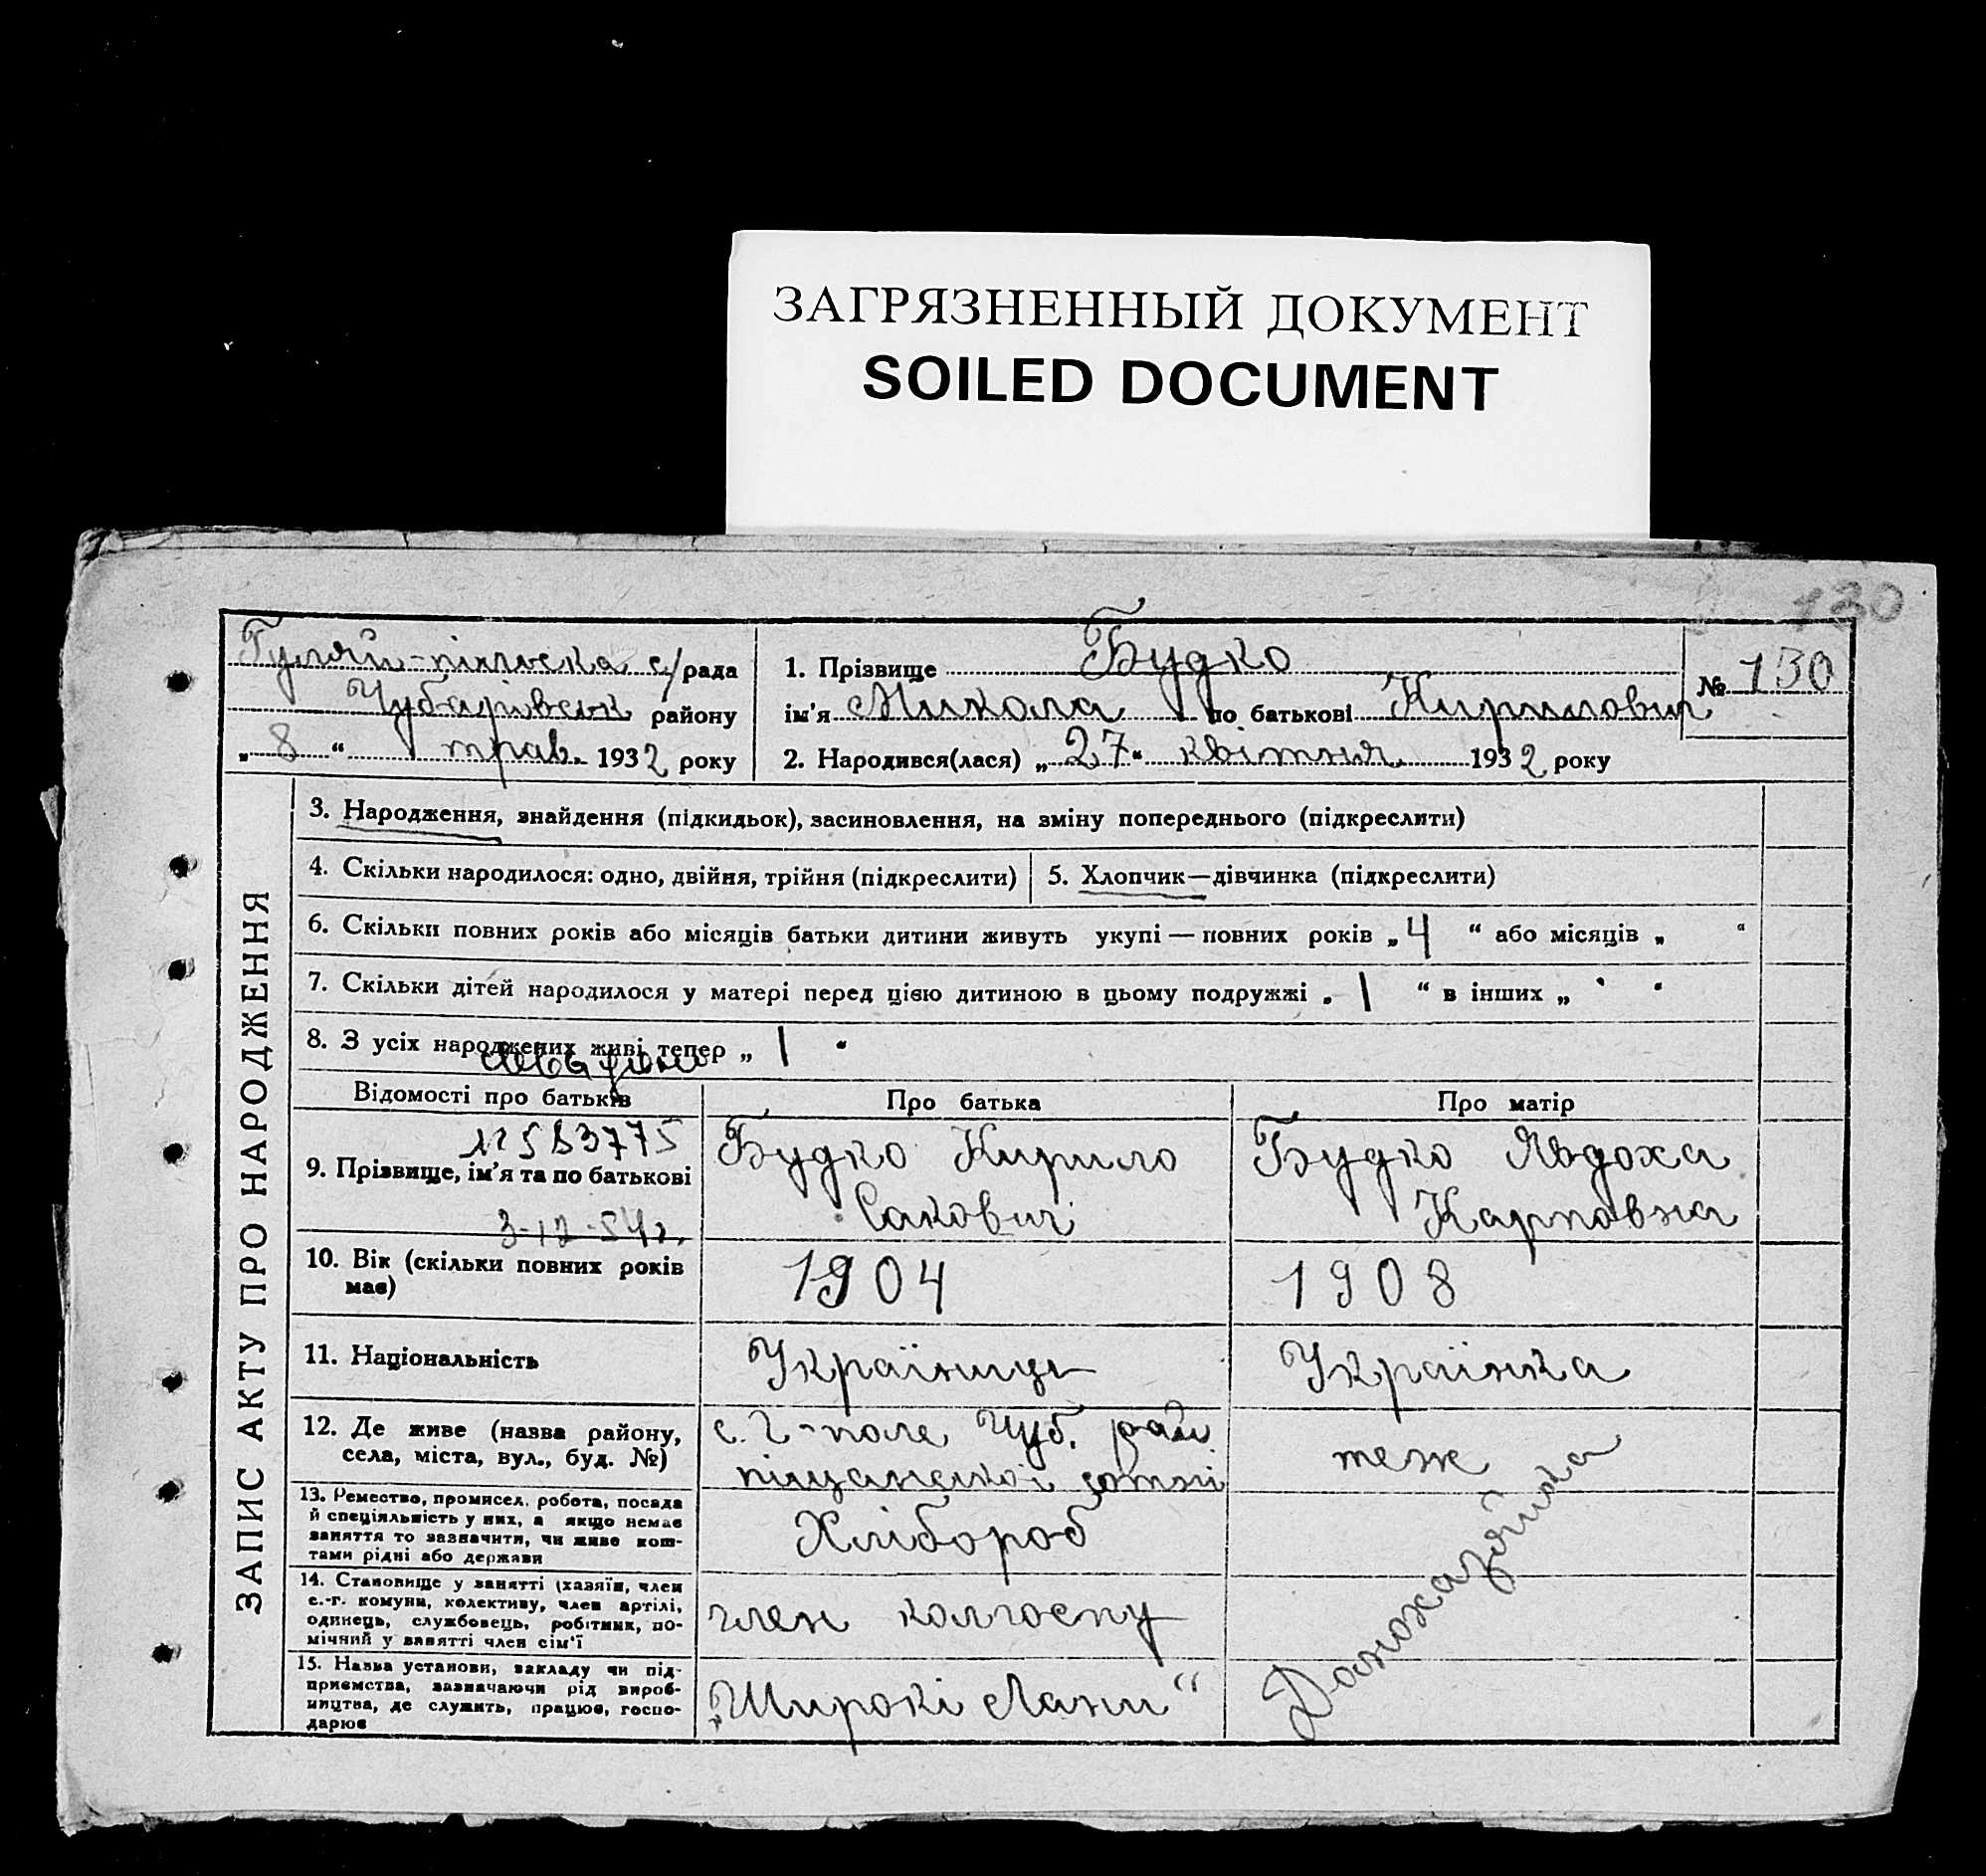 ЗАГРЯЗНЕННЫЙ ДОКУМЕНТ
SOILED DOCUMENT
130
Гуляй-пільська с/рада
Чубарівськ району
„ 8 “ трав. 1932 року
1. Прізвище Будко
ім'я Микола по батькові Кирилович
№ 130
2. Народився(лася) „ 27 “ квітня 1932 року
ЗАПИС АКТУ ПРО НАРОДЖЕННЯ
3. Народження, знайдення (підкидьок), засиновлення, на зміну попереднього (підкреслити)
4. Скільки народилося: одно, двійня, трійня (підкреслити)
5. Хлопчик—дівчинка (підкреслити)
6. Скільки повних років або місяців батьки дитини живуть укупі — повних років „ 4 “ або місяців „ “
7. Скільки дітей народилося у матері перед цією дитиною в цьому подружжі „ 1 “ в інших „ “
8. З усіх народжених живі тепер „ 1 “
Відомості про батьків
Про батька
Про матір
9. Прізвище, ім'я та по батькові
3-12-54г.
Будко Кирило
Сакович
Будко Явдоха
Карповна
10. Вік (скільки повних років
має)
1904
1908
11. Національність
Українець
Українка
12. Де живе (назва району,
села, міста, вул., буд. №)
с. Г-поле Чуб. рай
піщанської сотні
теж
13. Ремество, промисел, робота, посада
й спеціяльність у них, а якщо немає
заняття то зазначити, чи живе кош-
тами рідні або держави
Хлібороб
14. Становище у занятті (хазяїн, член
с.-г. комуни, колективу, член артілі,
одинець, службовець, робітник, по-
мічний у занятті член сім'ї
член колгоспу
15. Назва установи, закладу чи під-
приємства, зазначаючи рід вироб-
ництва, де служить, працює, госпо-
дарює
„Широкі Лани“
Домохазяйка